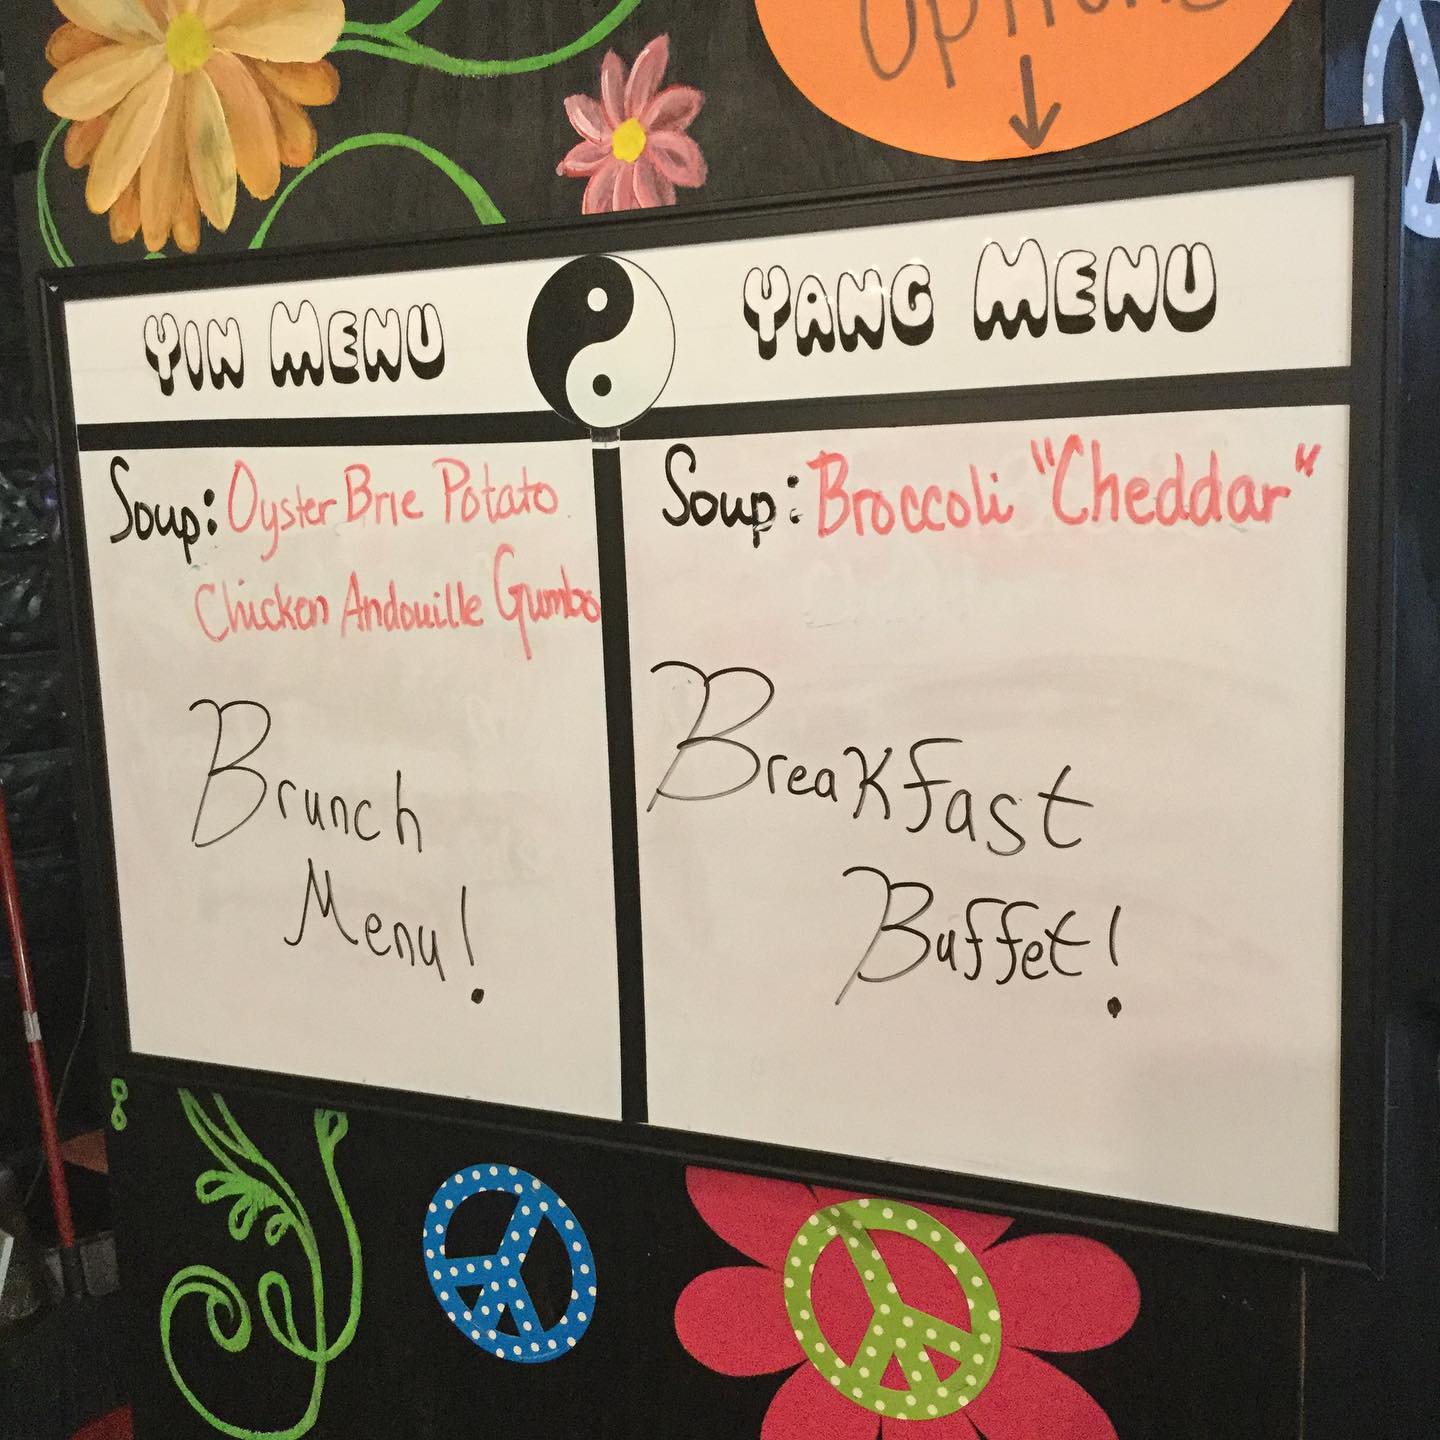 Options
Yin Menu
Yang Menu
Soup: Oyster Brie Potato
Chicken Andouille Gumbo
Brunch
Menu!
Soup: Broccoli "Cheddar"
Breakfast
Buffet!